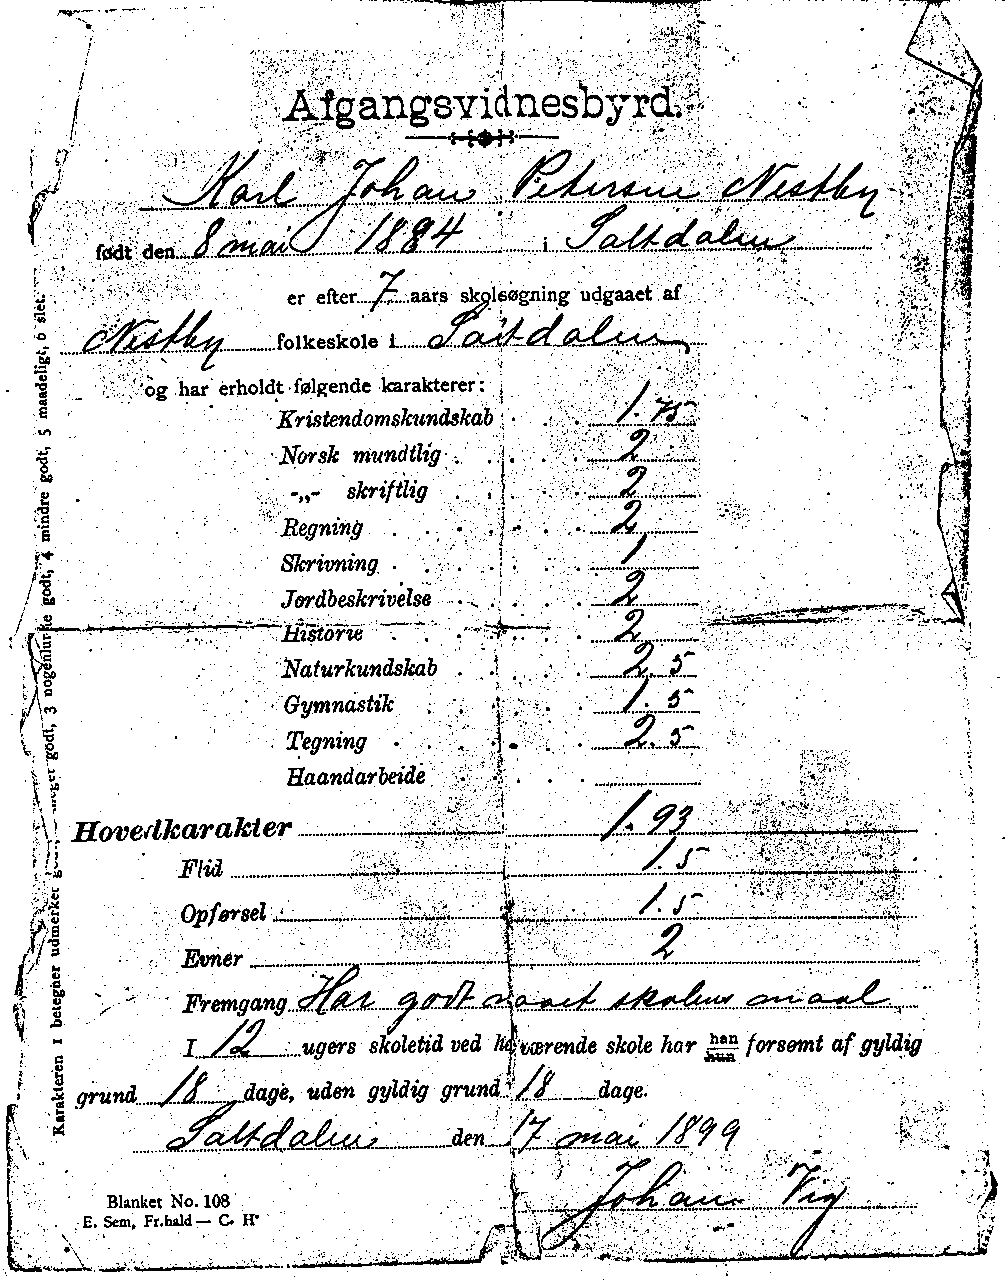 Afgangsvidnesbyrd.
Karl Johan Petersen Nestby
født den 8 mai 1884 i Saltdalen
er efter 7 aars skolesøgning udgaaet af
Nestby folkeskole i Saltdalen
og har erholdt følgende karakterer:
Kristendomskundskab 1.75
Norsk mundtlig 2
-„- skriftlig 2
Regning 2
Skrivning 1
Jordbeskrivelse 2
Historie 2
Naturkundskab 2.5
Gymnastik 1.5
Tegning 2.5
Haandarbeide
Hovedkarakter 1.93
Flid 1.5
Opførsel 1.5
Evner 2
Fremgang Har godt naaet skolens maal
I 12 ugers skoletid ved henværende skole har han hun forsømt af gyldig
grund 18 dage, uden gyldig grund 18 dage.
Saltdalen den 17 mai 1899
Johan Vig
Blanket No. 108
E. Sem, Fr.hald — C. H
Karakteren 1 betegner udmerket meget godt, 3 nogenlunde godt, 4 mindre godt, 5 maadeligt, 6 slet.